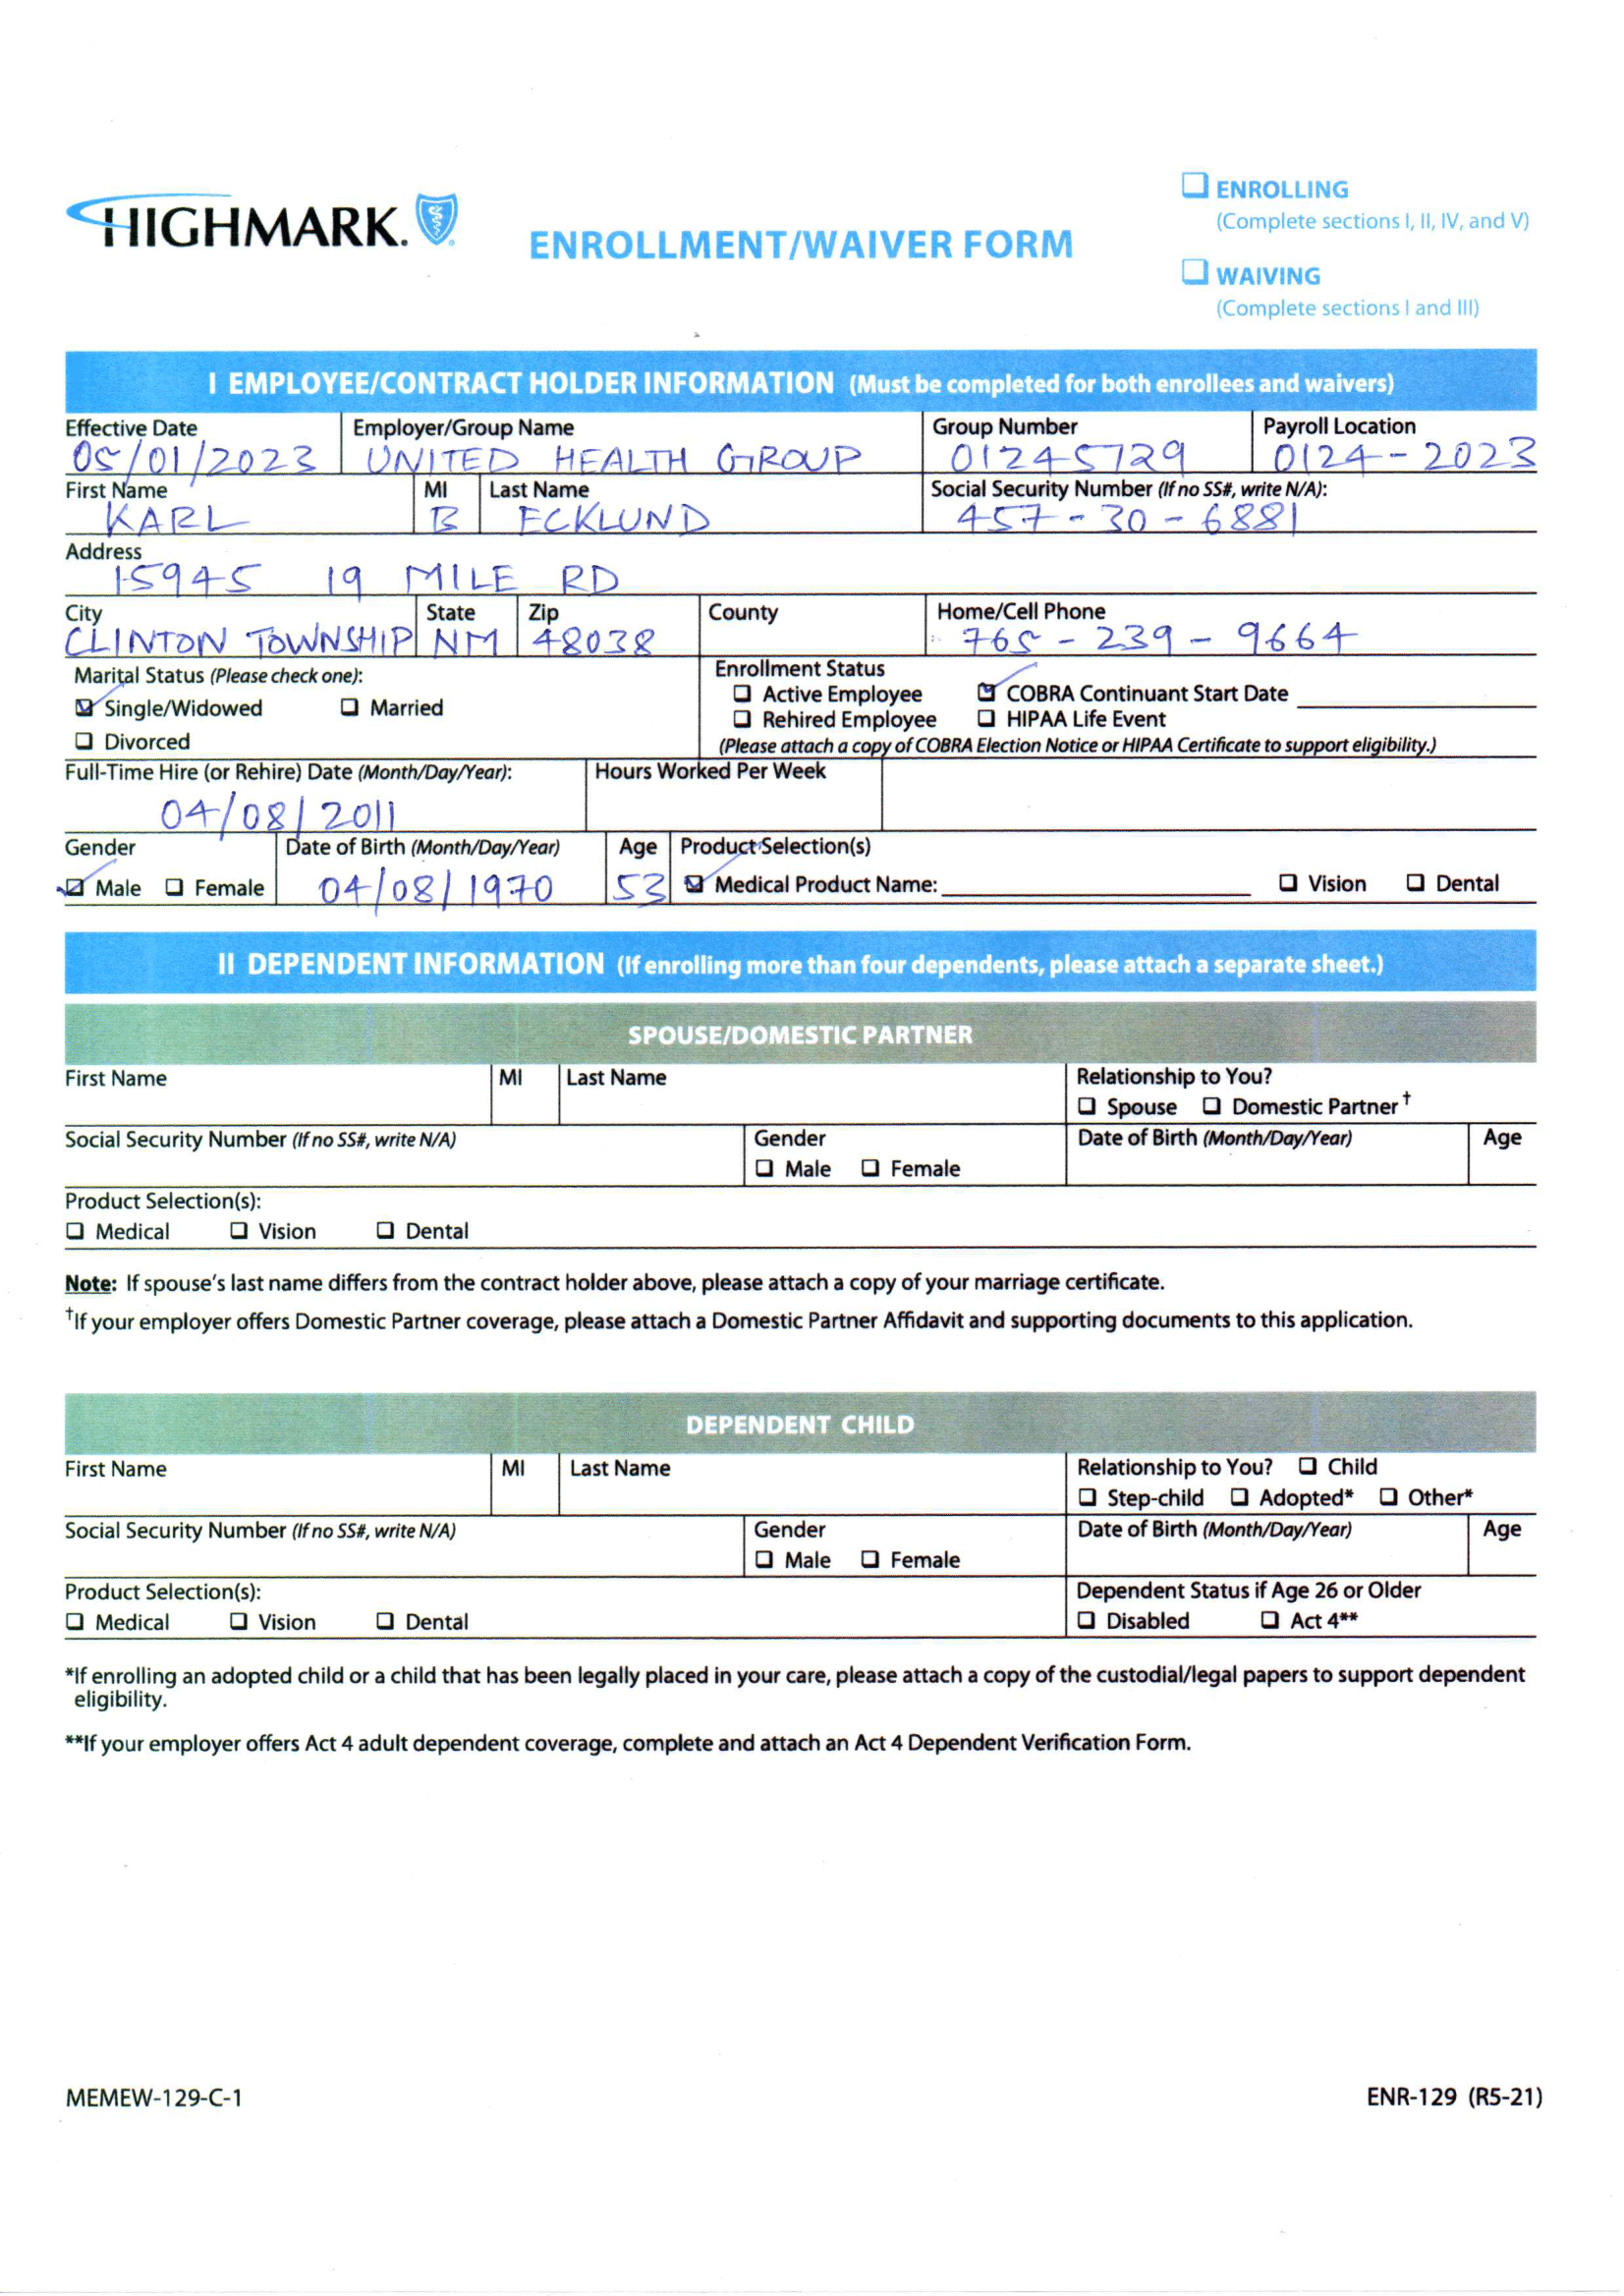 HIGHMARK.
ENROLLMENT/WAIVER FORM
ENROLLING
(Complete sections I, II, IV, and V)
WAIVING
(Complete sections I and III)
I EMPLOYEE/CONTRACT HOLDER INFORMATION (Must be completed for both enrollees and waivers)
Effective Date Employer/Group Name Group Number Payroll Location
05/01/2023 UNITED HEALTH GROUP 01245729 0124-2023
First Name MI Last Name Social Security Number (If no SS#, write N/A):
KARL B ECKLUND 457-30-6881
Address
15945 19 MILE RD
City State Zip County Home/Cell Phone
CLINTON TOWNSHIP NM 48038 765-239-9664
Marital Status (Please check one): Enrollment Status
Single/Widowed Married Active Employee COBRA Continuant Start Date
Divorced Rehired Employee HIPAA Life Event
(Please attach a copy of COBRA Election Notice or HIPAA Certificate to support eligibility.)
Full-Time Hire (or Rehire) Date (Month/Day/Year): Hours Worked Per Week
04/08/2011
Gender Date of Birth (Month/Day/Year) Age Product Selection(s)
Male Female 04/08/1970 53 Medical Product Name: Vision Dental
II DEPENDENT INFORMATION (If enrolling more than four dependents, please attach a separate sheet.)
SPOUSE/DOMESTIC PARTNER
First Name MI Last Name Relationship to You?
Spouse Domestic Partner†
Social Security Number (If no SS#, write N/A) Gender Date of Birth (Month/Day/Year) Age
Male Female
Product Selection(s):
Medical Vision Dental
Note: If spouse's last name differs from the contract holder above, please attach a copy of your marriage certificate.
†If your employer offers Domestic Partner coverage, please attach a Domestic Partner Affidavit and supporting documents to this application.
DEPENDENT CHILD
First Name MI Last Name Relationship to You? Child
Step-child Adopted* Other*
Social Security Number (If no SS#, write N/A) Gender Date of Birth (Month/Day/Year) Age
Male Female
Product Selection(s): Dependent Status if Age 26 or Older
Medical Vision Dental Disabled Act 4**
*If enrolling an adopted child or a child that has been legally placed in your care, please attach a copy of the custodial/legal papers to support dependent
eligibility.
**If your employer offers Act 4 adult dependent coverage, complete and attach an Act 4 Dependent Verification Form.
MEMEW-129-C-1 ENR-129 (R5-21)